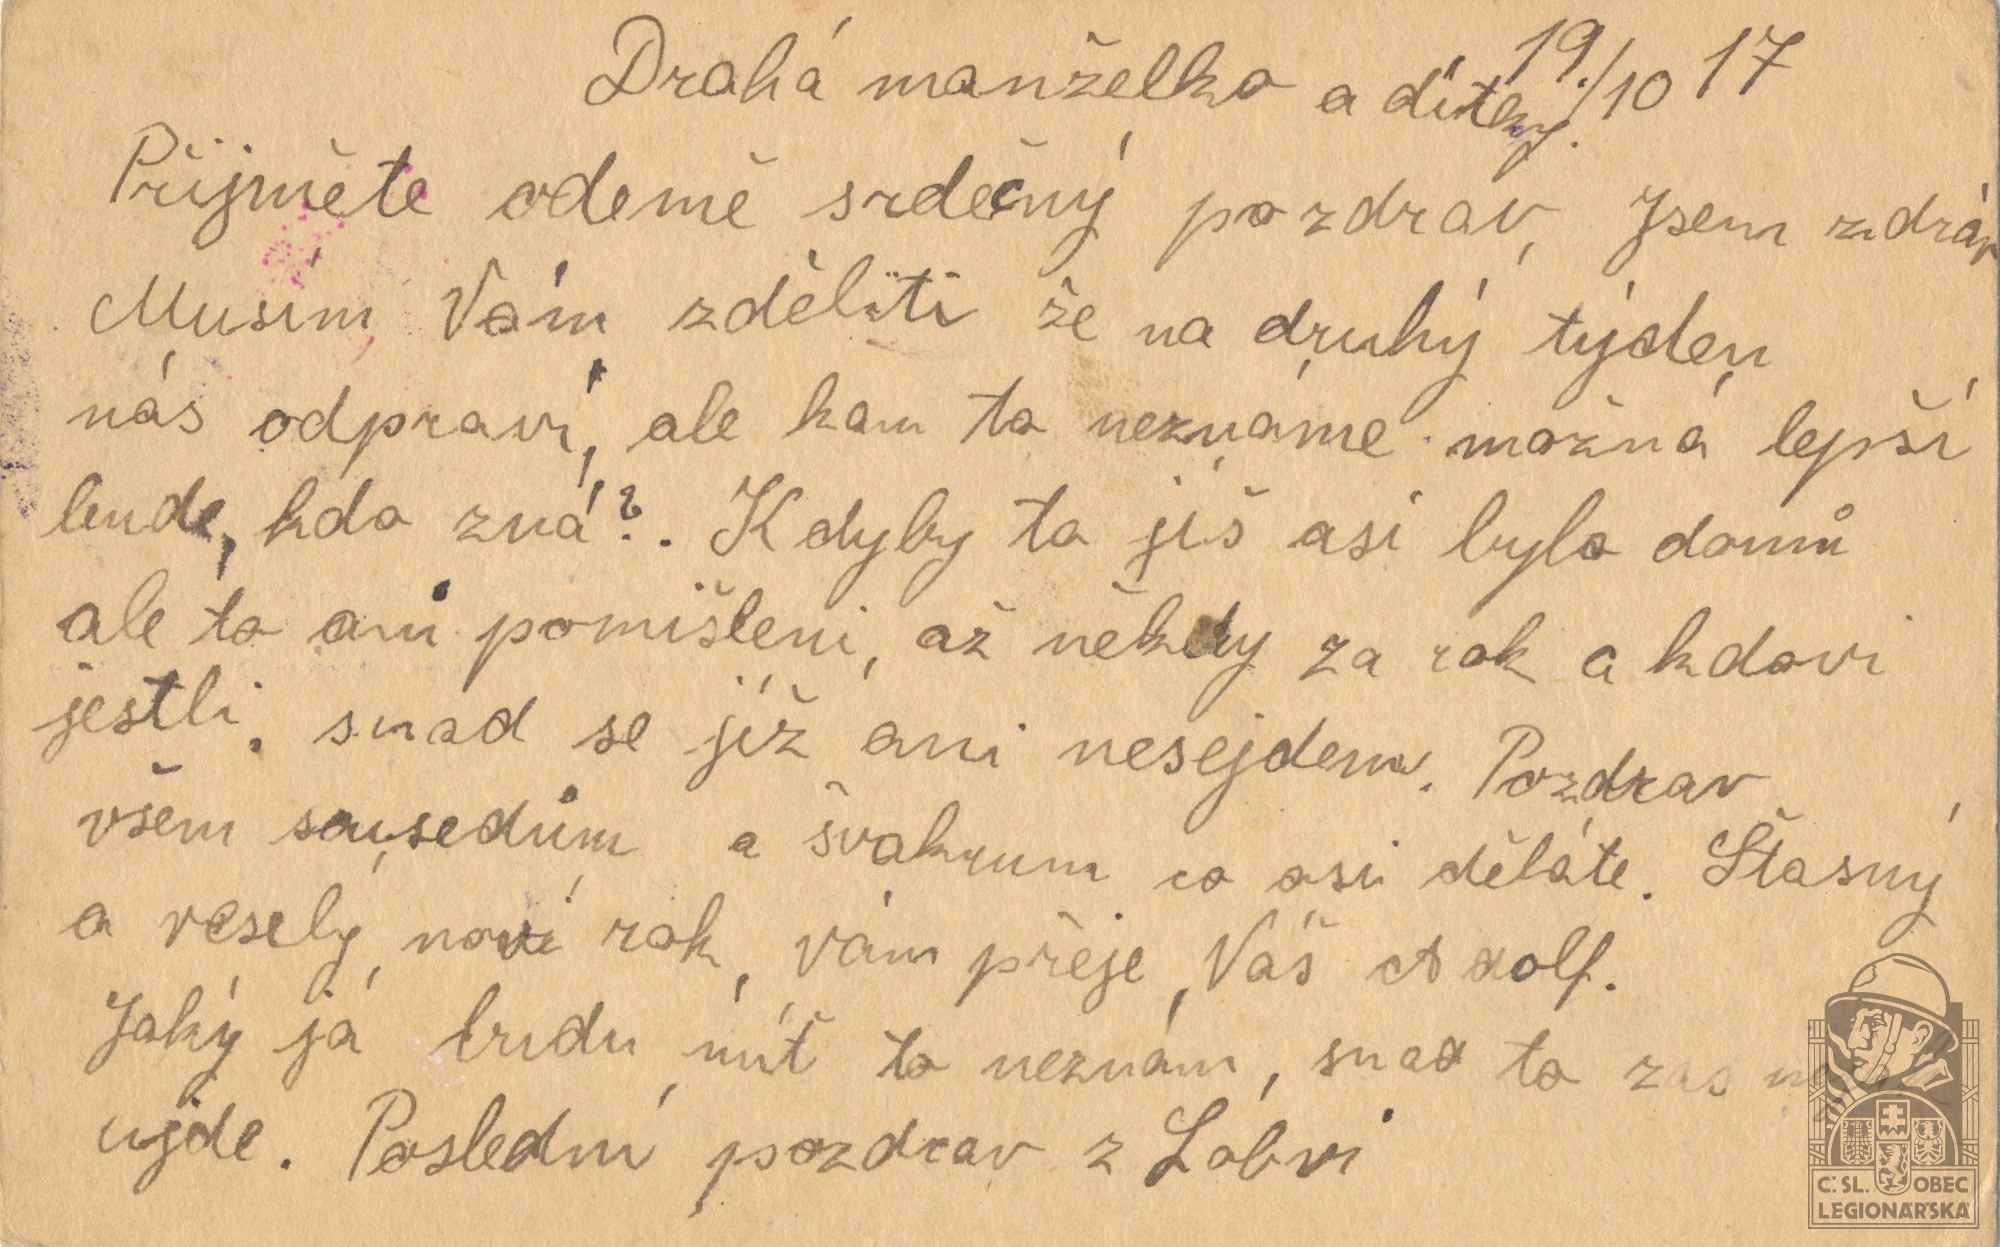 19./10 17
Drahá manželko a dítky.
Přijměte odemě srdečný pozdrav, Jsem zdráv
Musím Vám zděliti že na druhý týden
nás odpraví, ale kam to neznáme možná lepší
bude, kdo zná?. Kdyby to jiš asi bylo domů
ale to ani pomišleni, až někdy za rok a kdovi
jestli, snad se již ani nesejdem. Pozdrav
všem sousedům a švakrum co asi děláte. Štasný
a veselý nový rok, vám přeje, Váš Adolf.
Jaký já budu mít to neznám, snad to zas
ujde. Poslední pozdrav z Lobvi
Č. SL. OBEC
LEGIONÁŘSKÁ